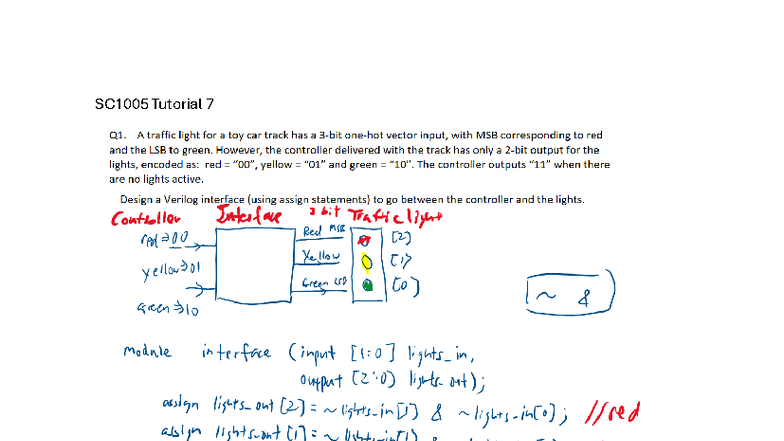 SC1005 Tutorial 7
Q1. A traffic light for a toy car track has a 3-bit one-hot vector input, with MSB corresponding to red
and the LSB to green. However, the controller delivered with the track has only a 2-bit output for the
lights, encoded as: red = “00”, yellow = “01” and green = “10”. The controller outputs “11” when there
are no lights active.
Design a Verilog interface (using assign statements) to go between the controller and the lights.
Controller Interface 3 bit Traffic light
red⇒00 Red MSB [2]
yellow⇒01 Yellow [1]
Green LSB [0]
green⇒10
~ &
module interface (input [1:0] lights_in,
output [2:0] lights_out);
assign lights_out[2] = ~lights_in[1] & ~lights_in[0]; //red
assign lights_out[1] = ~lights_in[1] &